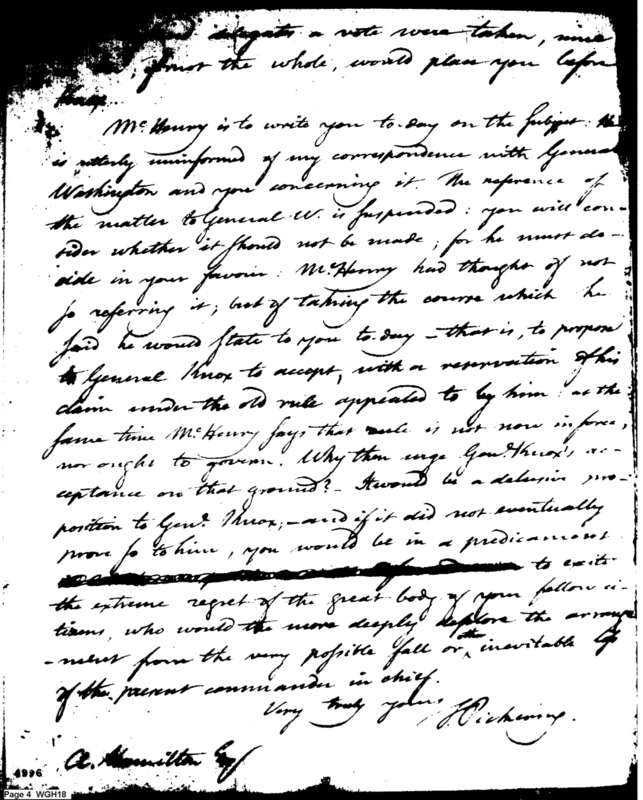 delegates a vote were taken, nine
, if not the whole, would place you before
Knox.
McHenry is to write you to-day on the subject: He
is utterly uninformed of my correspondence with General
Washington and you concerning it. The reference of
the matter to General W. is suspended: you will con-
sider whether it should not be made; for he must de-
cide in your favour. McHenry had thought of not
so referring it; but of taking the course which he
said he would state to you to-day – that is, to propose
to General Knox to accept, with a reservation of his
claim under the old rule appealed to by him: at the
same time McHenry says that rule is not now in force,
nor ought to govern. Why then urge Genl. Knox's ac-
ceptance on that ground? – It would be a delusive pro-
position to Genl. Knox; – and if it did not eventually
prove so to him, you would be in a predicament
to excite
the extreme regret of the great body of your fellow ci-
tizens, who would the more deeply deplore the arrange
-ment from the very possible fall or the inevitable
of the present commander in chief.
Very truly yours
T Pickering.
A. Hamilton Esq
4996
Page 4 WGH18